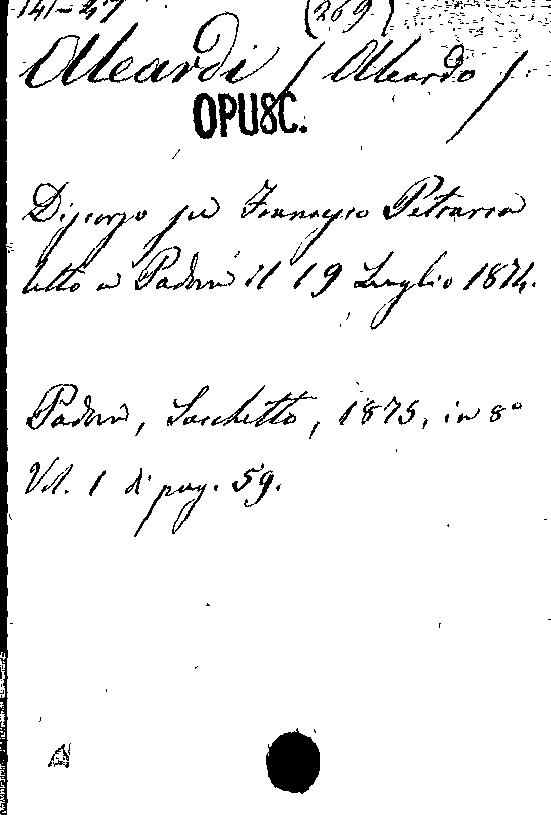 141-47 (269)
Aleardi (Aleardo)
OPUSC.
Discorso su Francesco Petrarca
letto a Padova il 19 Luglio 1874.
Padova, Sacchetto, 1875, in 8°
Vol. 1 di pag. 59.